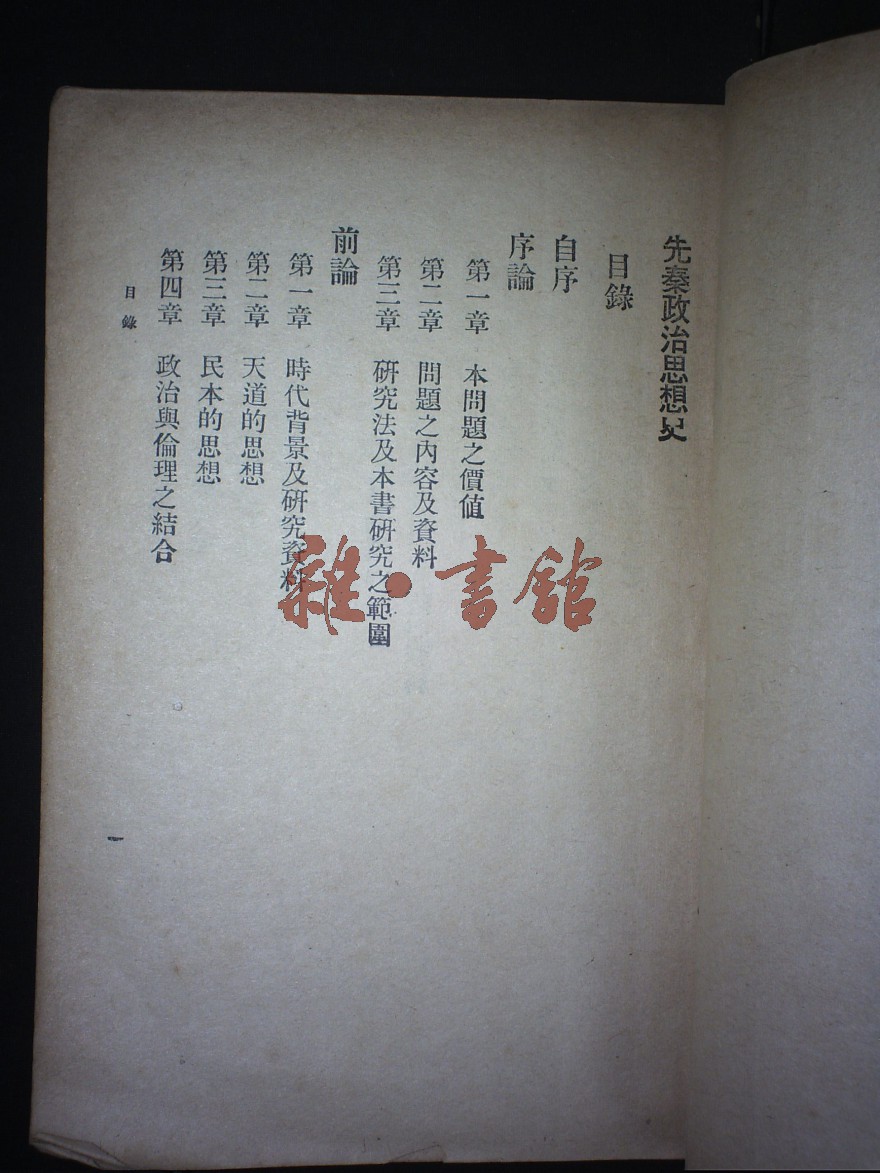 先秦政治思想史
目錄
自序
序論
第一章　本問題之價值
第二章　問題之內容及資料
第三章　研究法及本書研究之範圍
前論
第一章　時代背景及研究資料
第二章　天道的思想
第三章　民本的思想
第四章　政治與倫理之結合
目錄
一
雜·書館